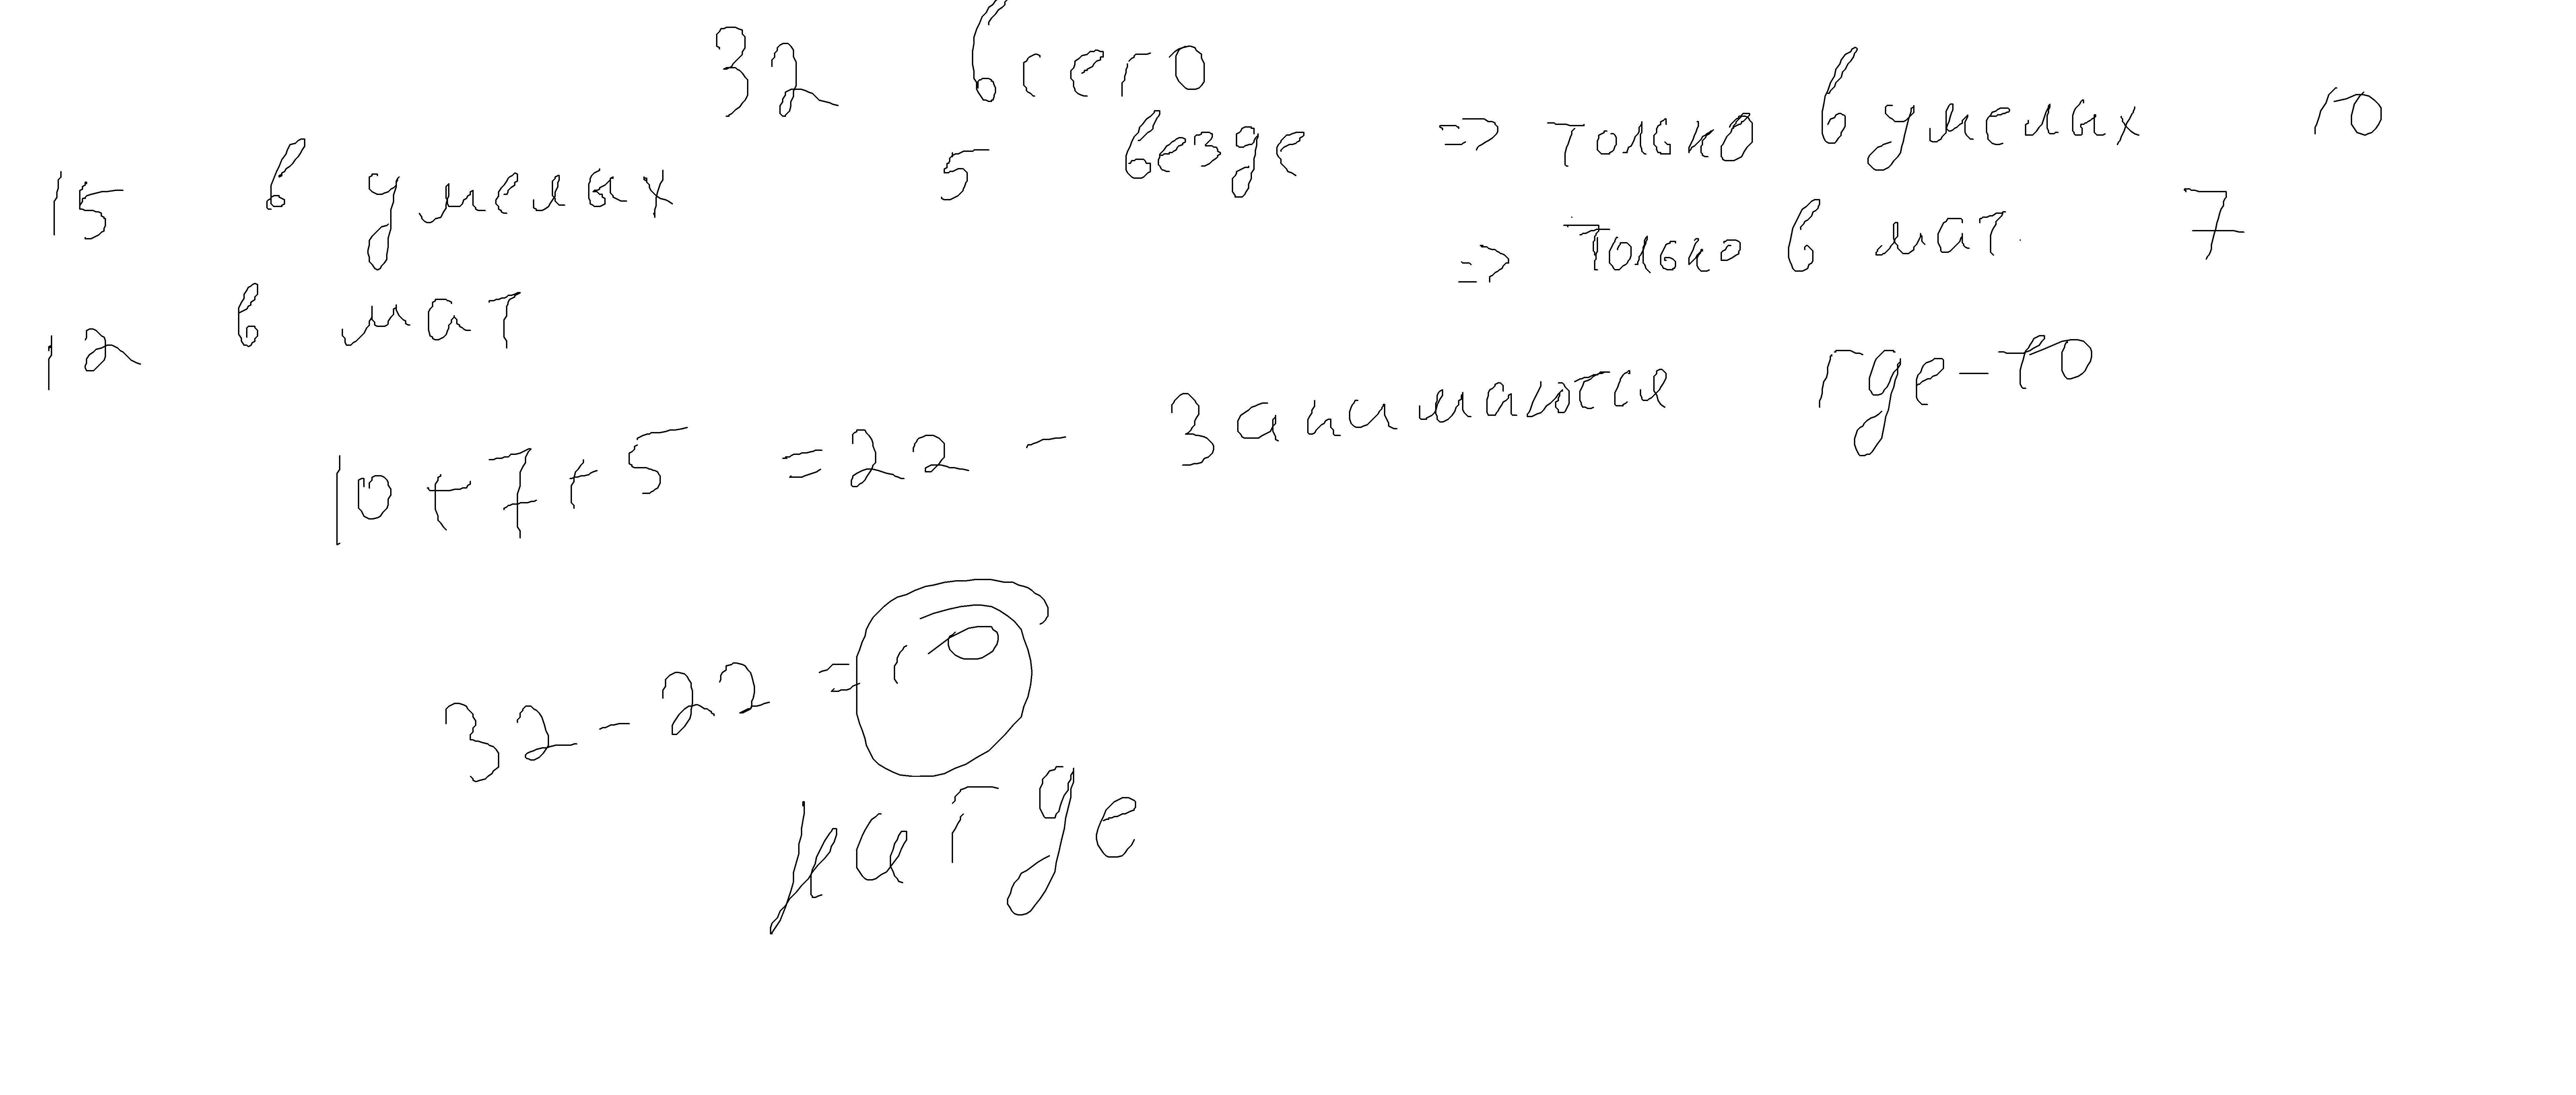 32 всего
15 в умелых 5 везде => только в умелых 10
=> только в мат. 7
12 в мат
10+7+5 =22 - занимаются где-то
32-22=10
нигде